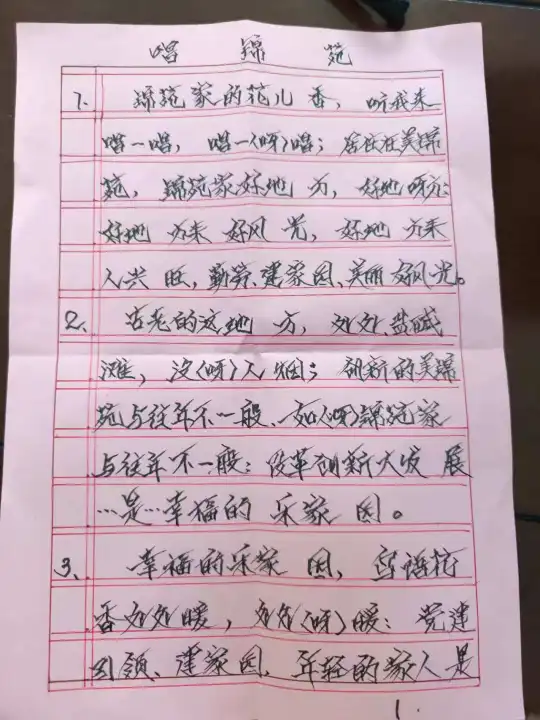 唱 锦 苑
1. 锦苑家的花儿香，听我来
唱一唱，唱一(呀)唱；居住在美锦
苑，锦苑家好地 方，好地呀方：
好地 方来 好风 光，好地 方来
人兴 旺，勤劳、建家园、美丽好风光。
2、 古老的这地 方，处处、盐碱
滩，没(呀)人烟；创新的美锦
苑与往年不一般、一如(呀)锦苑家
与往年不一般：改革创新大发 展
…是…幸福的 乐家 园。
3、 幸福的乐家 园，鸟语花
香处处暖，处处(呀)暖：党建
引领、建家园，年轻的家人是
1.